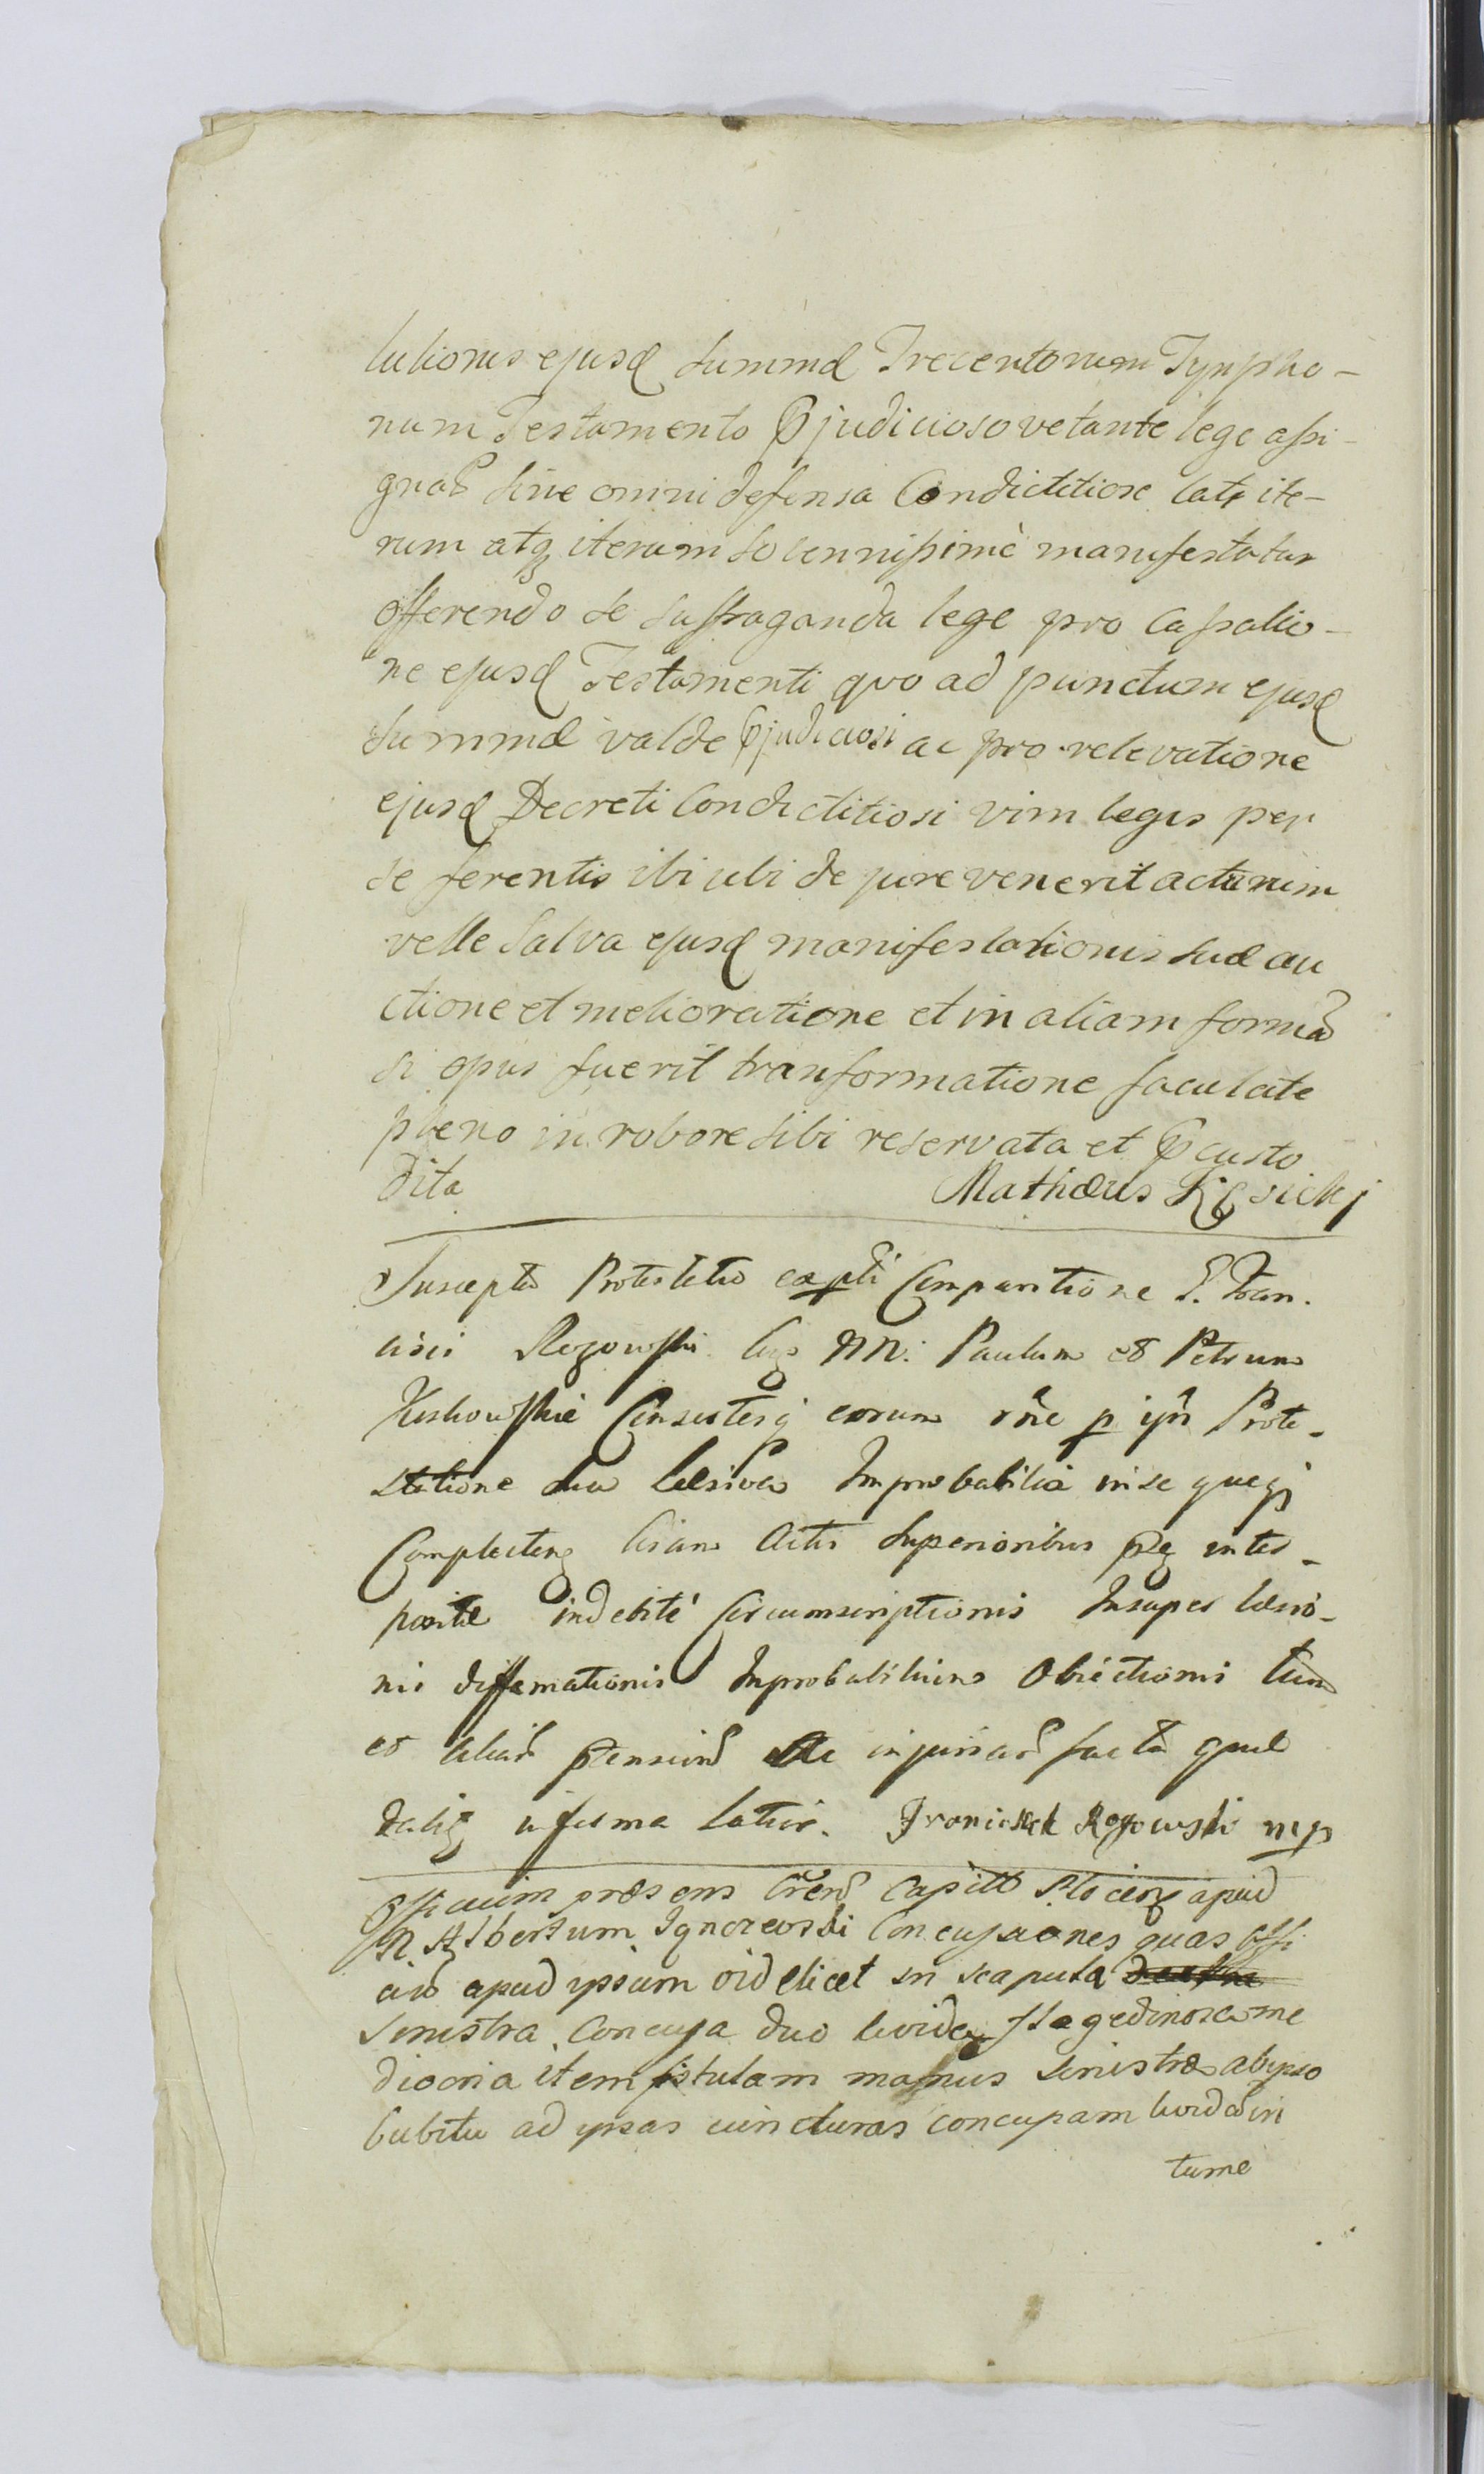 lutionis ejusd summæ Trecentorum Tynpho-
num Testamento Pjudicioso vetante lege assi-
gnat sine omni defensa Condictitiose late ite-
rum atq iterum solennissimè manifestatur
offerendo se suffraganda lege pro Cassatio-
ne ejusd Testamenti quo ad punctum ejusd
summæ valde Pjudiciosi ac pro relevatione
ejusd Decreti Condictitiosi vim legis per
se ferentis ibi ubi de jure venerit acturum
velle salva ejusd manifestationis suæ au
ctione et melioratione et in aliam formã
si opus fuerit tranformatione facultate
pleno in robore sibi reservata et Pcusto
dita Mathæus Kęsickj
Suscepta Protestatio Comparitione F. Fran.
cisci Rogowski NN. Paulum et Petrum
eorum rñe p Prote-
statione sua læsiva Improbabilia in se
Complecten Actis Superioribus inter-
positæ indebité Circumscriptionis Insuper læsio-
nis diffamationis Improbabilium Obiectionis tum
et aliar ac injuriar facta
latius. Franciszek Rogowski mp
Officium præsens Capitt Plocen apud
N. Albertum Concussiones quas offi
apud ypsum videlicet in scapula dextra
sinistra Concussa duo livida me
diocria item fistulam manus sinistræ ab ypso
Cubitu ad ypsas iuncturas concussam livid in
tume